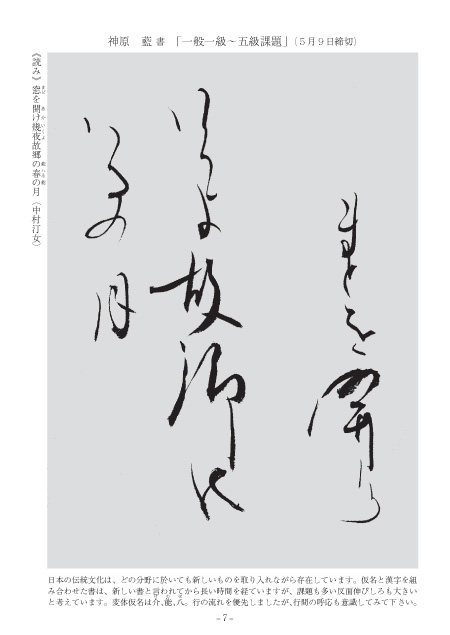 神原 藍 書 「一般一級~五級課題」(5月9日締切)
まとを開け
いくよ故郷の
はるの月
《読み》窓を開け幾夜故郷の春の月(中村汀女)
日本の伝統文化は、どの分野に於いても新しいものを取り入れながら存在しています。仮名と漢字を組
み合わせた書は、新しい書と言われてから長い時間を経ていますが、課題も多い反面伸びしろも大きい
と考えています。変体仮名は介、能、八。行の流れを優先しましたが、行間の呼応も意識してみて下さい。
-7-